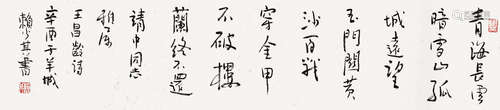 青海長雲
暗雪山孤
城遠望
玉門關黃
沙百戰
穿金甲
不破樓
蘭終不還
靖中同志
雅屬
王昌齡詩
辛酉于羊城
賴少其書